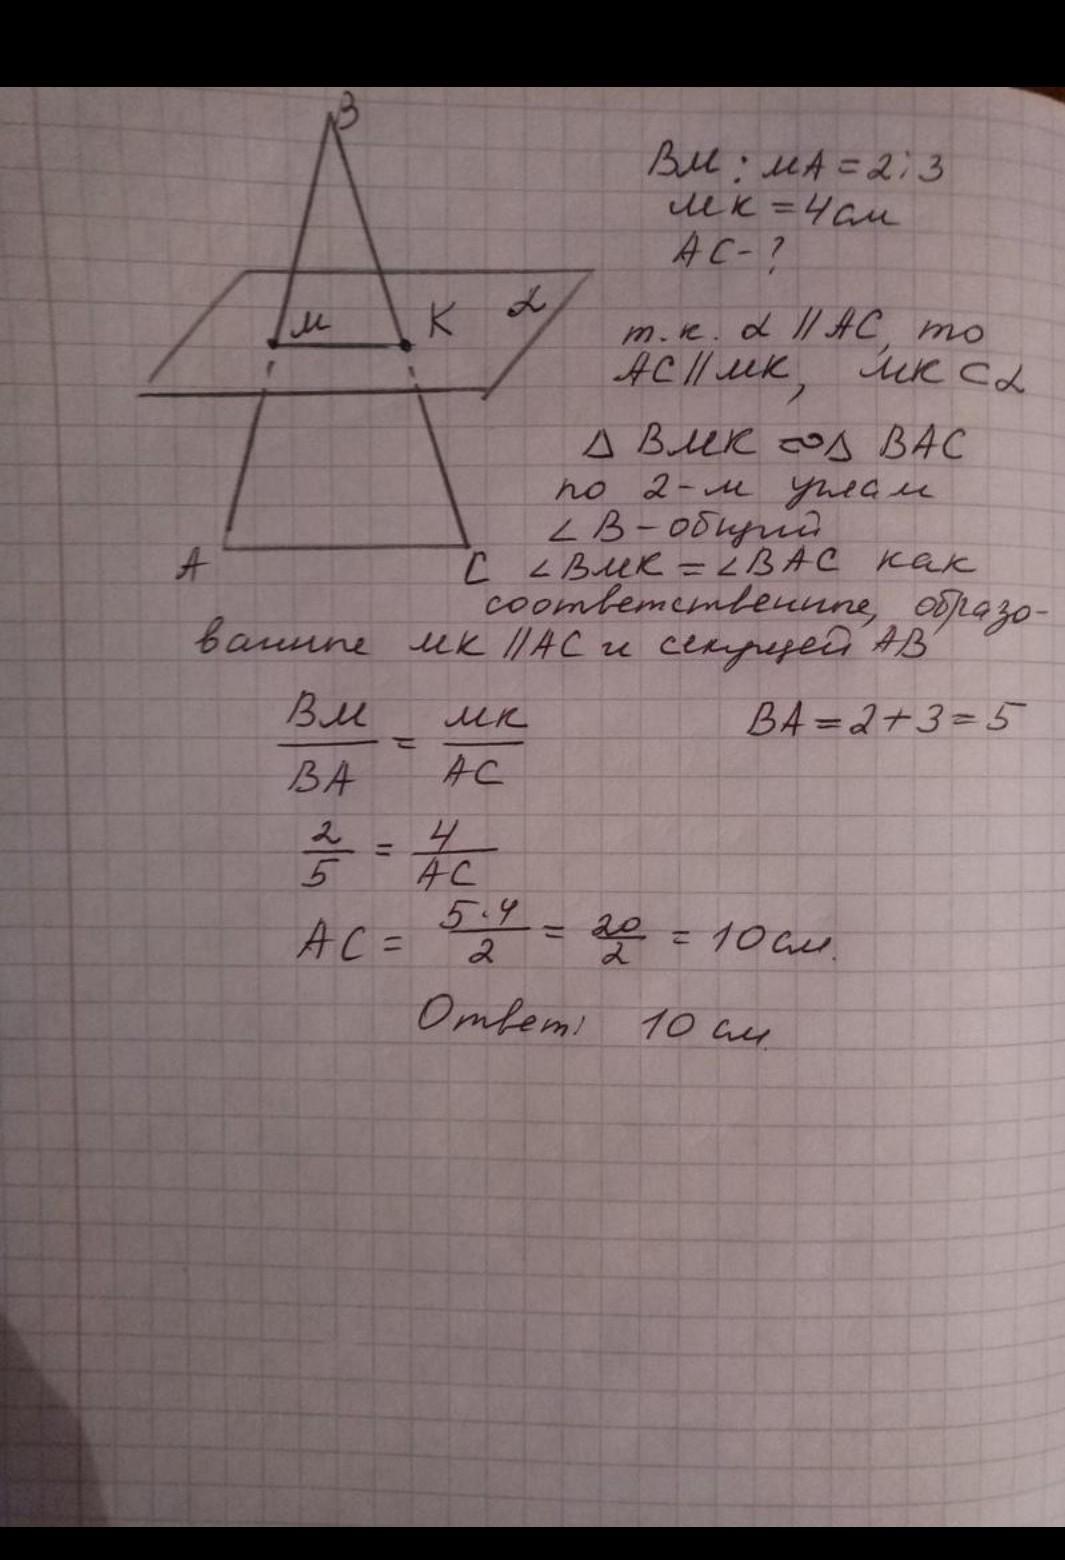 B
BM : MA = 2 : 3
MK = 4 см
AC - ?
M K α
т.к. α || AC, то
AC || MK, MK ⊂ α
Δ BMK ∾ Δ BAC
по 2-м углам
∠ B - общий
A C ∠ BMK = ∠ BAC как
соответственные, образо-
ванные MK || AC и секущей AB
BM/BA = MK/AC BA = 2 + 3 = 5
2/5 = 4/AC
AC = 5·4/2 = 20/2 = 10 см.
Ответ: 10 см.